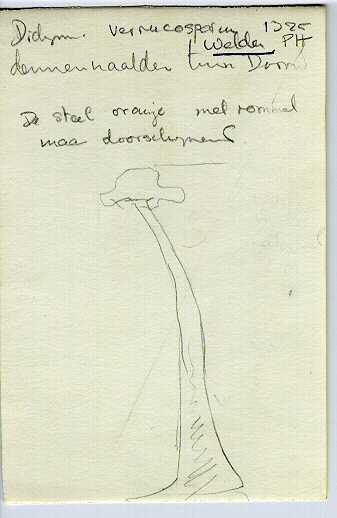 Didym. verrucosporum 1385
Welden PH
dennennaalden tuin Doorn
De steel oranje met rommel
maar doorschijnend